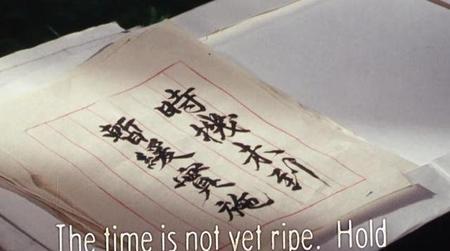 時機未到
暫緩實施
The time is not yet ripe. Hold